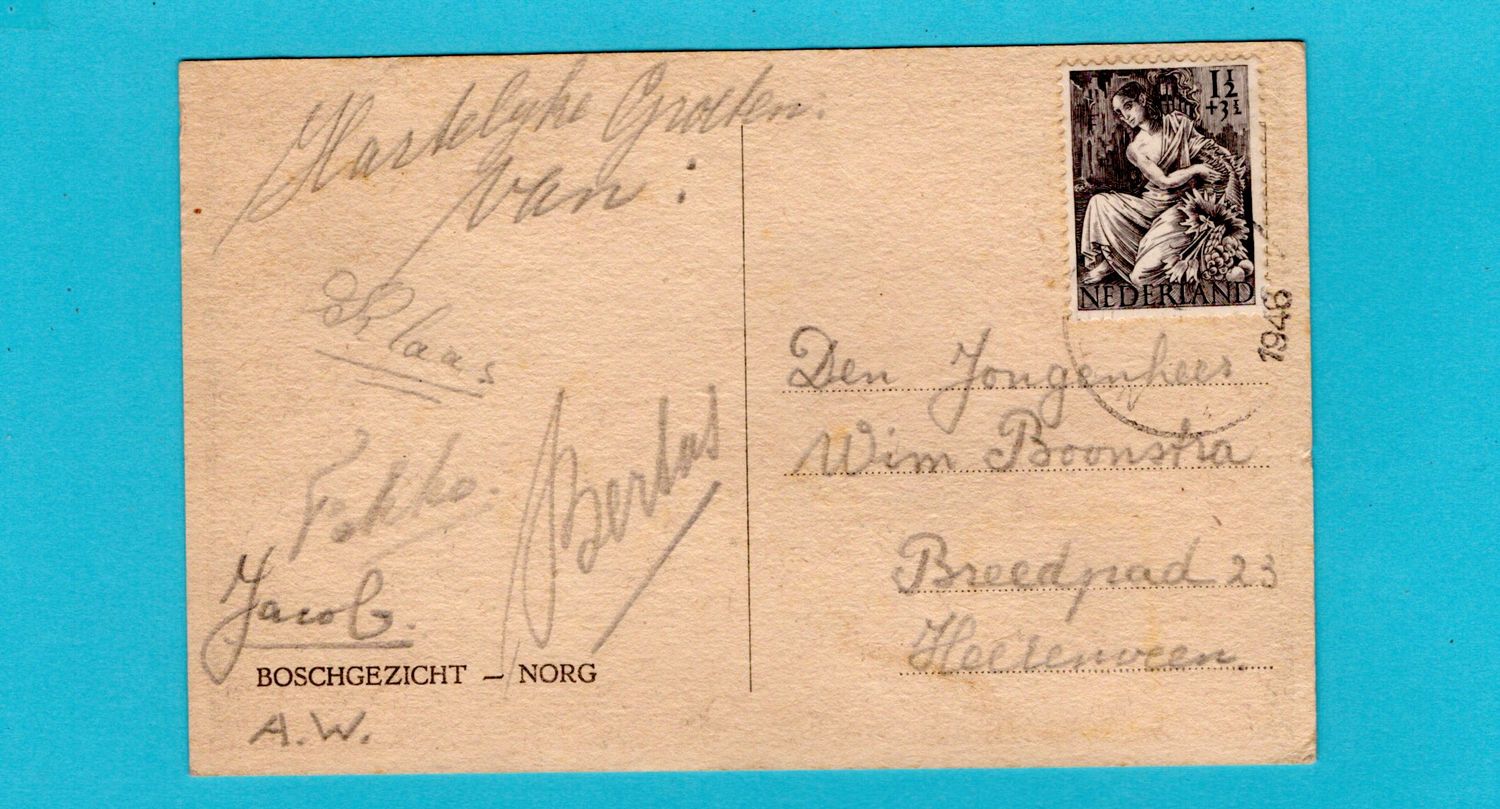 Hartelijke Groeten.
van:
Klaas
Fokko.
Bertus
Jacob.
BOSCHGEZICHT — NORG
A.W.
1½
+3½
NEDERLAND
1946
Den Jongenheer
Wim Boonstra
Breedpad 23
Heerenveen.